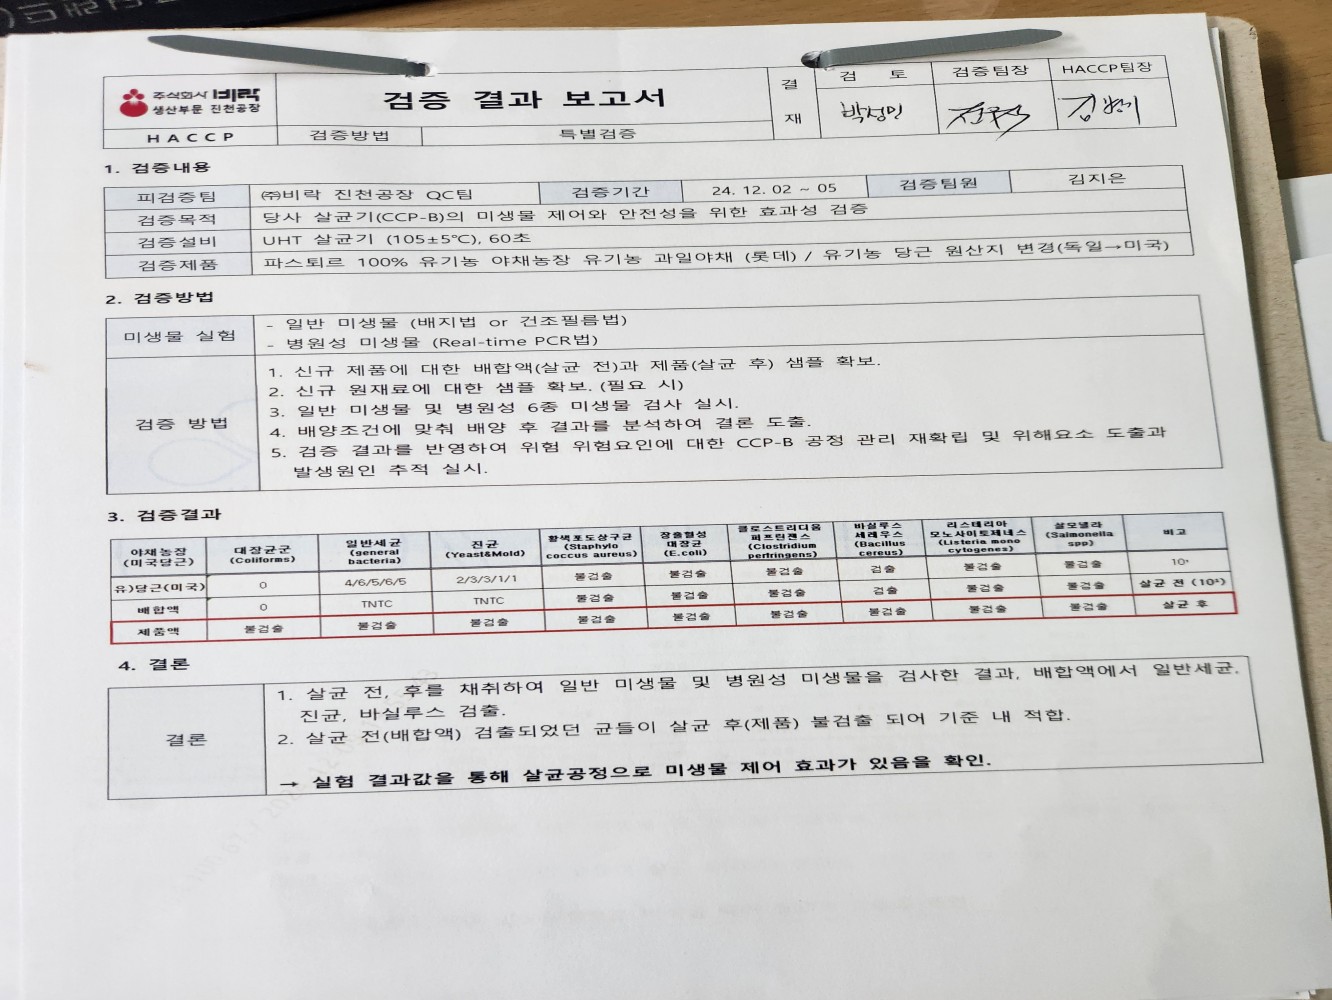 주식회사 비락
생산부문 진천공장
HACCP
검증 결과 보고서
검증방법 특별검증
결재 검 토 검증팀장 HACCP팀장
박성민
1. 검증내용
피검증팀 ㈜비락 진천공장 QC팀 검증기간 24. 12. 02 ~ 05 검증팀원 김지은
검증목적 당사 살균기(CCP-B)의 미생물 제어와 안전성을 위한 효과성 검증
검증설비 UHT 살균기 (105±5℃), 60초
검증제품 파스퇴르 100% 유기농 야채농장 유기농 과일야채 (롯데) / 유기농 당근 원산지 변경(독일→미국)
2. 검증방법
미생물 실험
- 일반 미생물 (배지법 or 건조필름법)
- 병원성 미생물 (Real-time PCR법)
검증 방법
1. 신규 제품에 대한 배합액(살균 전)과 제품(살균 후) 샘플 확보.
2. 신규 원재료에 대한 샘플 확보. (필요 시)
3. 일반 미생물 및 병원성 6종 미생물 검사 실시.
4. 배양조건에 맞춰 배양 후 결과를 분석하여 결론 도출.
5. 검증 결과를 반영하여 위험 위험요인에 대한 CCP-B 공정 관리 재확립 및 위해요소 도출과
발생원인 추적 실시.
3. 검증결과
야채농장 (미국당근) 대장균군 (Coliforms) 일반세균 (general bacteria) 진균 (Yeast&Mold) 황색포도상구균 (Staphylo coccus aureus) 장출혈성 대장균 (E.coli) 클로스트리디움 퍼프린젠스 (Clostridium perfringens) 바실루스 세레우스 (Bacillus cereus) 리스테리아 모노사이토제네스 (Listeria mono cytogenes) 살모넬라 (Salmonella spp) 비고
유)당근(미국) 0 4/6/5/6/5 2/3/3/1/1 불검출 불검출 불검출 검출 불검출 불검출
배합액 0 TNTC TNTC 불검출 불검출 불검출 검출 불검출 불검출 살균 전
제품액 불검출 불검출 불검출 불검출 불검출 불검출 불검출 불검출 불검출 살균 후
4. 결론
결론
1. 살균 전, 후를 채취하여 일반 미생물 및 병원성 미생물을 검사한 결과, 배합액에서 일반세균,
진균, 바실루스 검출.
2. 살균 전(배합액) 검출되었던 균들이 살균 후(제품) 불검출 되어 기준 내 적합.
→ 실험 결과값을 통해 살균공정으로 미생물 제어 효과가 있음을 확인.